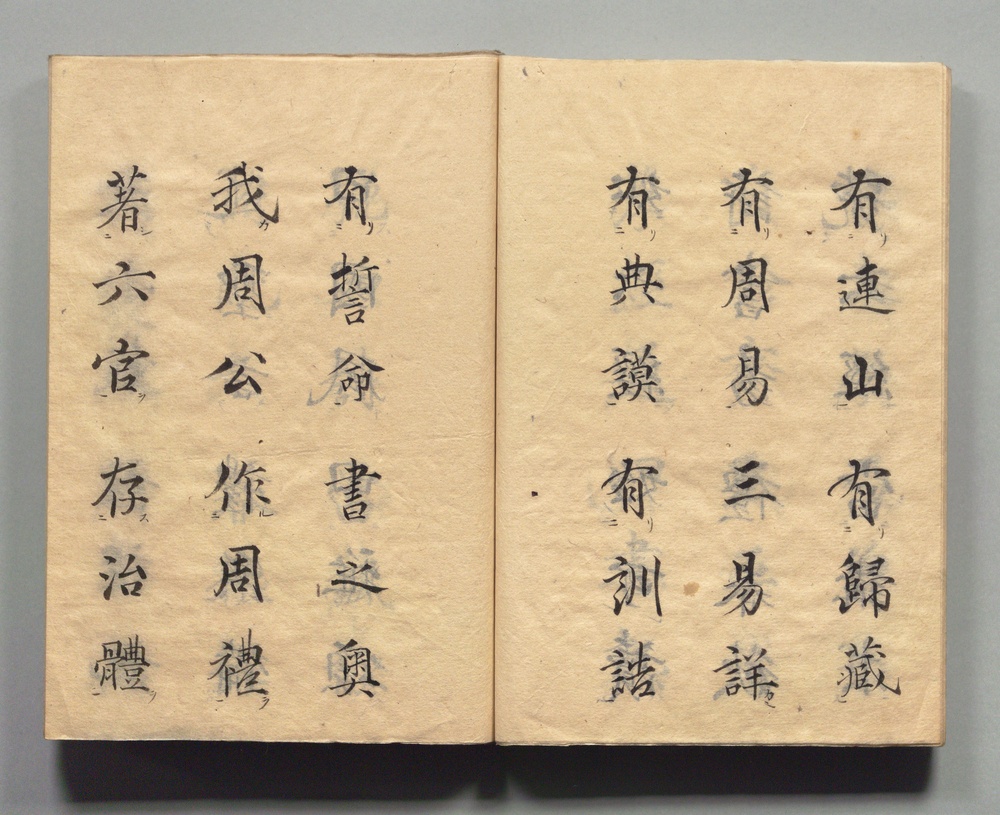 有連山有歸藏
有周易三易詳
有典謨有訓誥
有誓命書之奧
我周公作周禮
著六官存治體